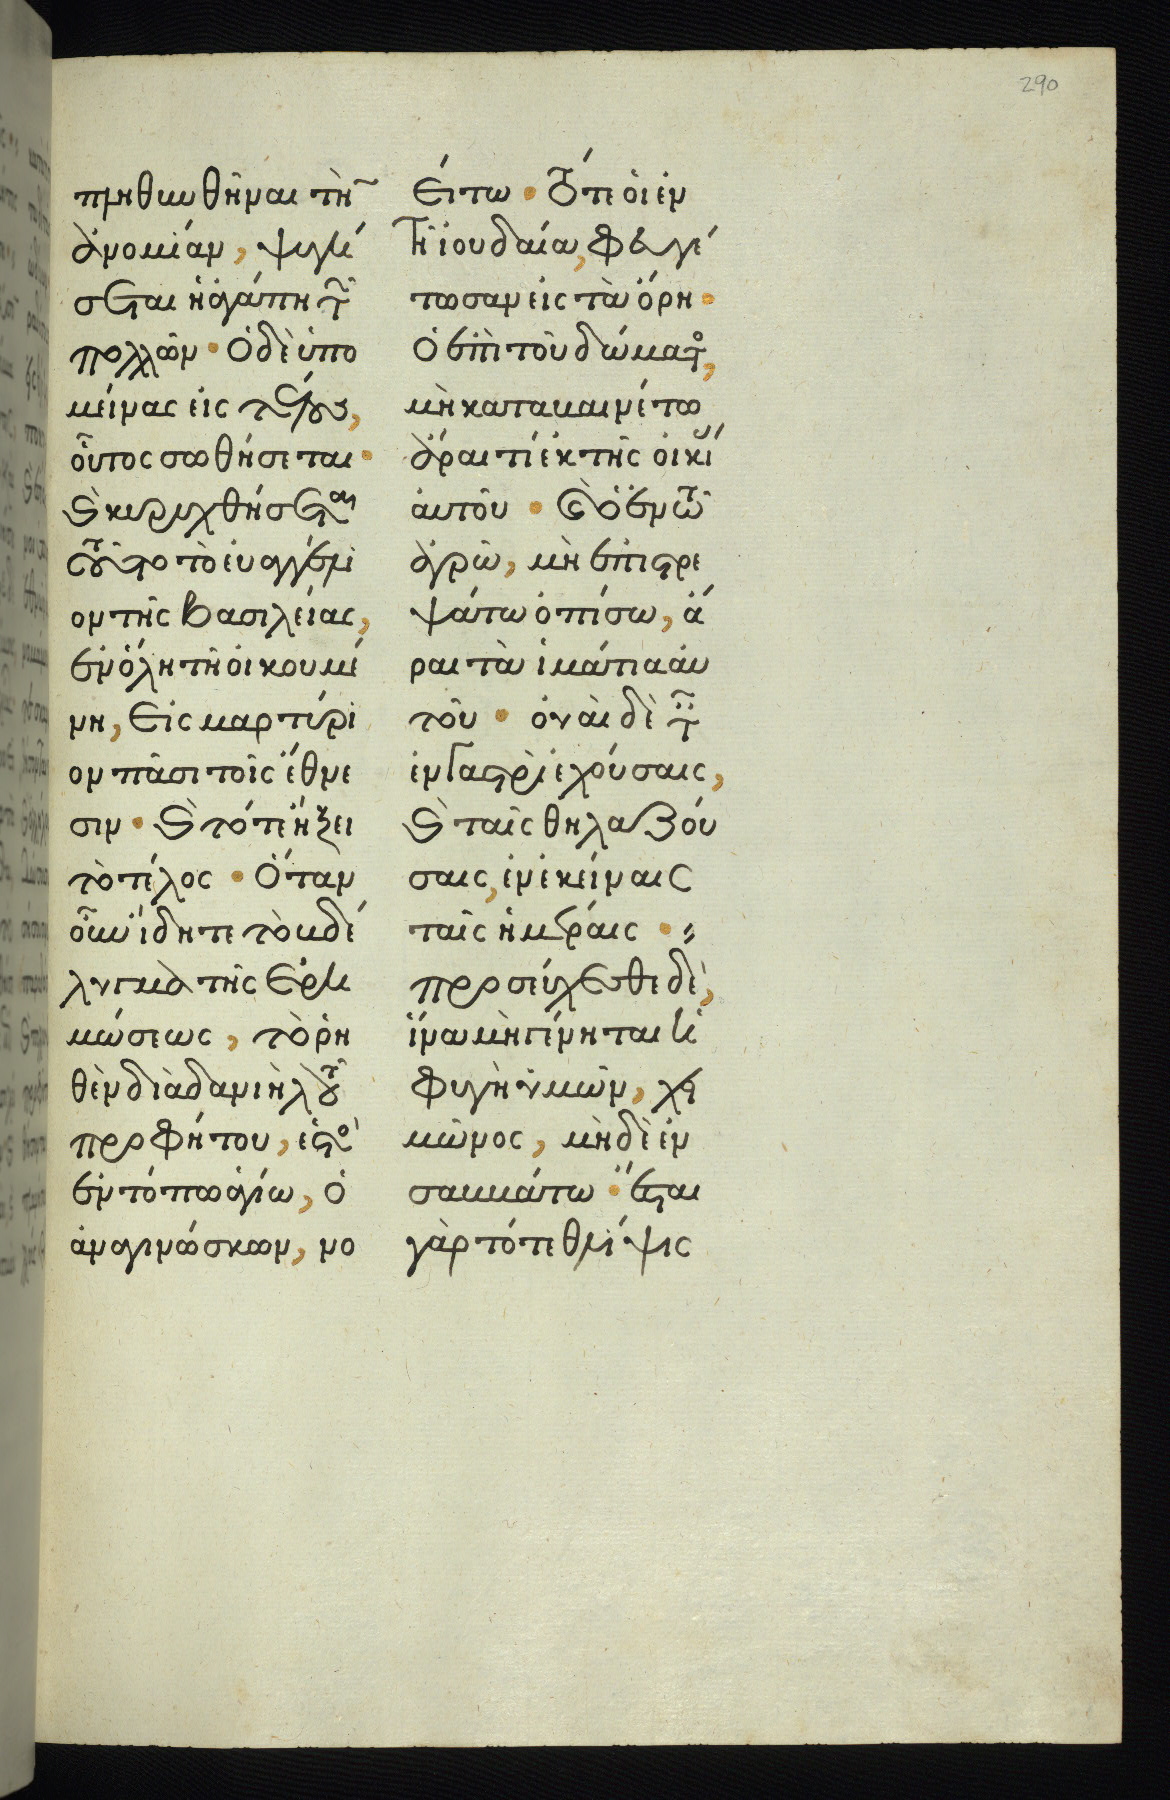 290
πληθυνθῆναι τὴν
ἀνομίαν, ψυγή
σεται ἡ ἀγάπη τῶν
πολλῶν· Ὁ δὲ ὑπο
μείνας εἰς τέλος,
οὗτος σωθήσεται·
καὶ κηρυχθήσεται
τοῦτο τὸ εὐαγγέλι
ον τῆς βασιλείας,
ἐν ὅλη τῆ οἰκουμέ
νη, εἰς μαρτύρι
ον πᾶσι τοῖς ἔθνε
σιν· καὶ τότε ἥξει
τὸ τέλος· Ὅταν
οὖν ἴδητε τὸ βδέ
λυγμα τῆς ἐρη
μώσεως, τὸ ῥη
θὲν διὰ δανιὴλ τοῦ
προφήτου, ἑστὸς
ἐν τόπω ἁγίω, ὁ
ἀναγινώσκων, νο
είτω· Τότε οἱ ἐν
τῆ ἰουδαία, φευγέ
τωσαν εἰς τὰ ὄρη·
Ὁ ἐπὶ τοῦ δώματος,
μὴ καταβαινέτω
ἆραι τί ἐκ τῆς οἰκίας
αὐτοῦ· καὶ ὁ ἐν τῶ
ἀγρῶ, μὴ ἐπιστρε
ψάτω ὀπίσω, ἆ
ραι τὰ ἱμάτια αὐ
τοῦ· οὐαὶ δὲ ταῖς
ἐν γαστρὶ ἐχούσαις,
καὶ ταῖς θηλαζού
σαις, ἐν ἐκείναις
ταῖς ἡμέραις·
προσεύχεσθε δὲ,
ἵνα μὴ γένηται ἡ
φυγὴ ὑμῶν, χει
μῶνος, μηδὲ ἐν
σαββάτω· ἔσται
γὰρ τότε θλίψις